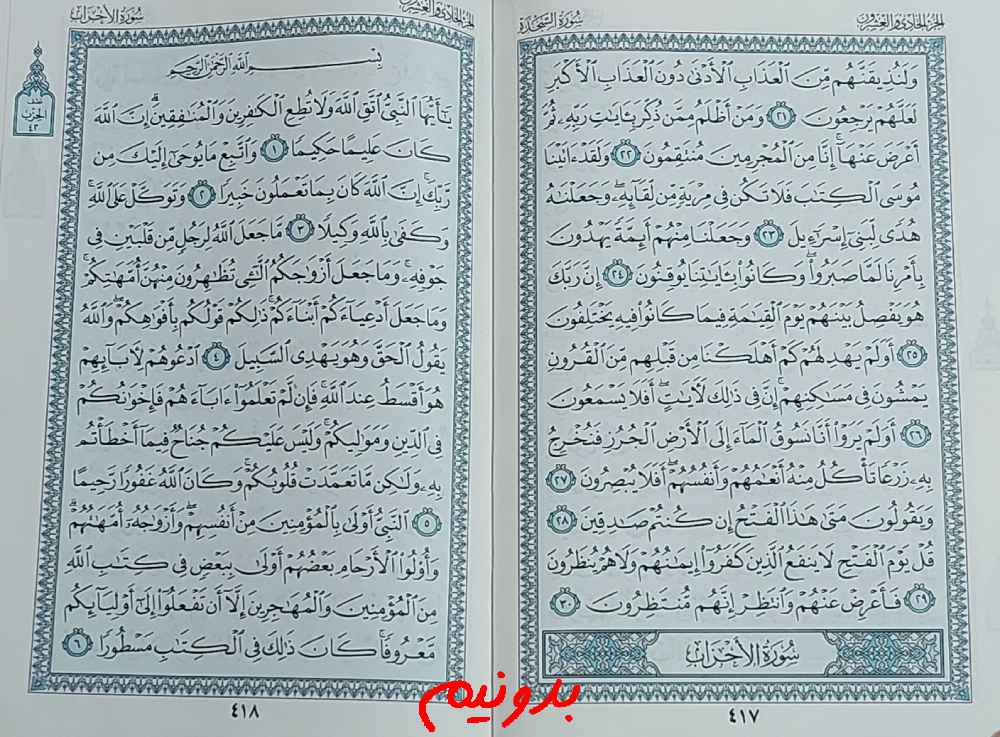 الجزء الحادي والعشرون
سُورَةُ السَّجْدَةِ
وَلَنُذِيقَنَّهُم مِّنَ ٱلْعَذَابِ ٱلْأَدْنَىٰ دُونَ ٱلْعَذَابِ ٱلْأَكْبَرِ
لَعَلَّهُمْ يَرْجِعُونَ ٢١ وَمَنْ أَظْلَمُ مِمَّن ذُكِّرَ بِـَٔايَٰتِ رَبِّهِۦ ثُمَّ
أَعْرَضَ عَنْهَآ ۚ إِنَّا مِنَ ٱلْمُجْرِمِينَ مُنتَقِمُونَ ٢٢ وَلَقَدْ ءَاتَيْنَا
مُوسَى ٱلْكِتَٰبَ فَلَا تَكُن فِى مِرْيَةٍ مِّن لِّقَآئِهِۦ ۖ وَجَعَلْنَٰهُ
هُدًى لِّبَنِىٓ إِسْرَٰٓءِيلَ ٢٣ وَجَعَلْنَا مِنْهُمْ أَئِمَّةً يَهْدُونَ
بِأَمْرِنَا لَمَّا صَبَرُوا۟ ۖ وَكَانُوا۟ بِـَٔايَٰتِنَا يُوقِنُونَ ٢٤ إِنَّ رَبَّكَ
هُوَ يَفْصِلُ بَيْنَهُمْ يَوْمَ ٱلْقِيَٰمَةِ فِيمَا كَانُوا۟ فِيهِ يَخْتَلِفُونَ
٢٥ أَوَلَمْ يَهْدِ لَهُمْ كَمْ أَهْلَكْنَا مِن قَبْلِهِم مِّنَ ٱلْقُرُونِ
يَمْشُونَ فِى مَسَٰكِنِهِمْ ۚ إِنَّ فِى ذَٰلِكَ لَـَٔايَٰتٍ ۖ أَفَلَا يَسْمَعُونَ
٢٦ أَوَلَمْ يَرَوْا۟ أَنَّا نَسُوقُ ٱلْمَآءَ إِلَى ٱلْأَرْضِ ٱلْجُرُزِ فَنُخْرِجُ
بِهِۦ زَرْعًا تَأْكُلُ مِنْهُ أَنْعَٰمُهُمْ وَأَنفُسُهُمْ ۖ أَفَلَا يُبْصِرُونَ ٢٧
وَيَقُولُونَ مَتَىٰ هَٰذَا ٱلْفَتْحُ إِن كُنتُمْ صَٰدِقِينَ ٢٨
قُلْ يَوْمَ ٱلْفَتْحِ لَا يَنفَعُ ٱلَّذِينَ كَفَرُوٓا۟ إِيمَٰنُهُمْ وَلَا هُمْ يُنظَرُونَ
٢٩ فَأَعْرِضْ عَنْهُمْ وَٱنتَظِرْ إِنَّهُم مُّنتَظِرُونَ ٣٠
سُورَةُ الأَحْزَابِ
٤١٧
الجزء الحادي والعشرون
سُورَةُ الأَحْزَابِ
نصف
الحزب
٤٢
بِسْمِ ٱللَّهِ ٱلرَّحْمَٰنِ ٱلرَّحِيمِ
يَٰٓأَيُّهَا ٱلنَّبِىُّ ٱتَّقِ ٱللَّهَ وَلَا تُطِعِ ٱلْكَٰفِرِينَ وَٱلْمُنَٰفِقِينَ ۗ إِنَّ ٱللَّهَ
كَانَ عَلِيمًا حَكِيمًا ١ وَٱتَّبِعْ مَا يُوحَىٰٓ إِلَيْكَ مِن
رَّبِّكَ ۚ إِنَّ ٱللَّهَ كَانَ بِمَا تَعْمَلُونَ خَبِيرًا ٢ وَتَوَكَّلْ عَلَى ٱللَّهِ ۚ
وَكَفَىٰ بِٱللَّهِ وَكِيلًا ٣ مَّا جَعَلَ ٱللَّهُ لِرَجُلٍ مِّن قَلْبَيْنِ فِى
جَوْفِهِۦ ۚ وَمَا جَعَلَ أَزْوَٰجَكُمُ ٱلَّٰٓـِٔى تُظَٰهِرُونَ مِنْهُنَّ أُمَّهَٰتِكُمْ ۚ
وَمَا جَعَلَ أَدْعِيَآءَكُمْ أَبْنَآءَكُمْ ۚ ذَٰلِكُمْ قَوْلُكُم بِأَفْوَٰهِكُمْ ۖ وَٱللَّهُ
يَقُولُ ٱلْحَقَّ وَهُوَ يَهْدِى ٱلسَّبِيلَ ٤ ٱدْعُوهُمْ لِـَٔابَآئِهِمْ
هُوَ أَقْسَطُ عِندَ ٱللَّهِ ۚ فَإِن لَّمْ تَعْلَمُوٓا۟ ءَابَآءَهُمْ فَإِخْوَٰنُكُمْ
فِى ٱلدِّينِ وَمَوَٰلِيكُمْ ۚ وَلَيْسَ عَلَيْكُمْ جُنَاحٌ فِيمَآ أَخْطَأْتُم
بِهِۦ وَلَٰكِن مَّا تَعَمَّدَتْ قُلُوبُكُمْ ۚ وَكَانَ ٱللَّهُ غَفُورًا رَّحِيمًا
٥ ٱلنَّبِىُّ أَوْلَىٰ بِٱلْمُؤْمِنِينَ مِنْ أَنفُسِهِمْ ۖ وَأَزْوَٰجُهُۥٓ أُمَّهَٰتُهُمْ ۗ
وَأُو۟لُوا۟ ٱلْأَرْحَامِ بَعْضُهُمْ أَوْلَىٰ بِبَعْضٍ فِى كِتَٰبِ ٱللَّهِ
مِنَ ٱلْمُؤْمِنِينَ وَٱلْمُهَٰجِرِينَ إِلَّآ أَن تَفْعَلُوٓا۟ إِلَىٰٓ أَوْلِيَآئِكُم
مَّعْرُوفًا ۚ كَانَ ذَٰلِكَ فِى ٱلْكِتَٰبِ مَسْطُورًا ٦
٤١٨
بدونیم